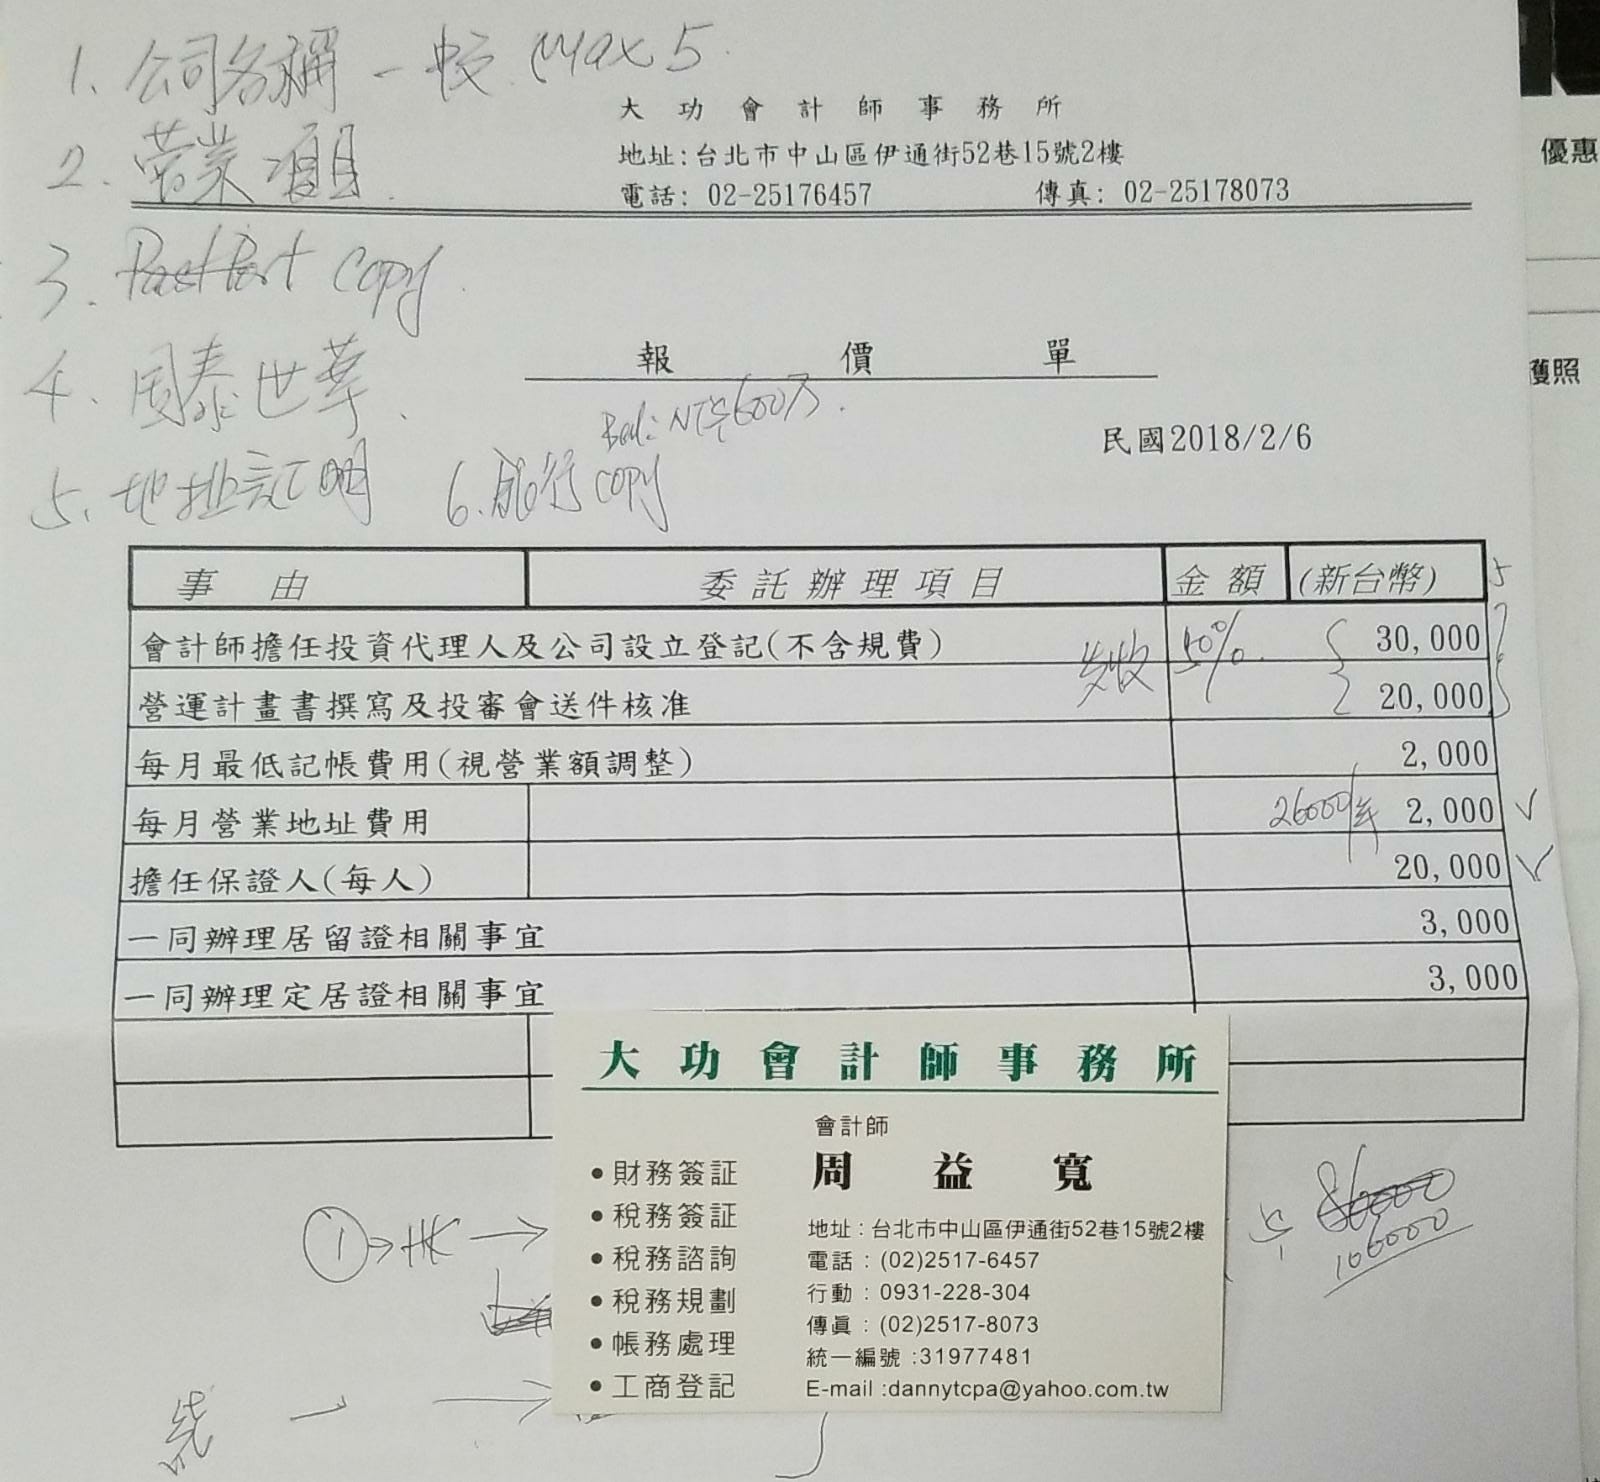 1. 公司名稱 - 中文. Max 5.
大功會計師事務所
地址:台北市中山區伊通街52巷15號2樓
電話: 02-25176457 傳真: 02-25178073
2. 營業項目.
3. PastPort Copy.
4. 国泰世華.
報價單
Bal: NT$600万.
民國2018/2/6
5. 地址証明 6. 旅行 copy
事由 委託辦理項目 金額 (新台幣)
會計師擔任投資代理人及公司設立登記(不含規費) 30,000
先收 50%.
營運計畫書撰寫及投審會送件核准 20,000
每月最低記帳費用(視營業額調整) 2,000
每月營業地址費用 26000/年 2,000 ✓
擔任保證人(每人) 20,000 ✓
一同辦理居留證相關事宜 3,000
一同辦理定居證相關事宜 3,000
大功會計師事務所
會計師
周益寬
•財務簽証
•稅務簽証
•稅務諮詢
•稅務規劃
•帳務處理
•工商登記
地址:台北市中山區伊通街52巷15號2樓
電話:(02)2517-6457
行動:0931-228-304
傳眞:(02)2517-8073
統一編號:31977481
E-mail:dannytcpa@yahoo.com.tw
① → HK →
106000
優惠
護照